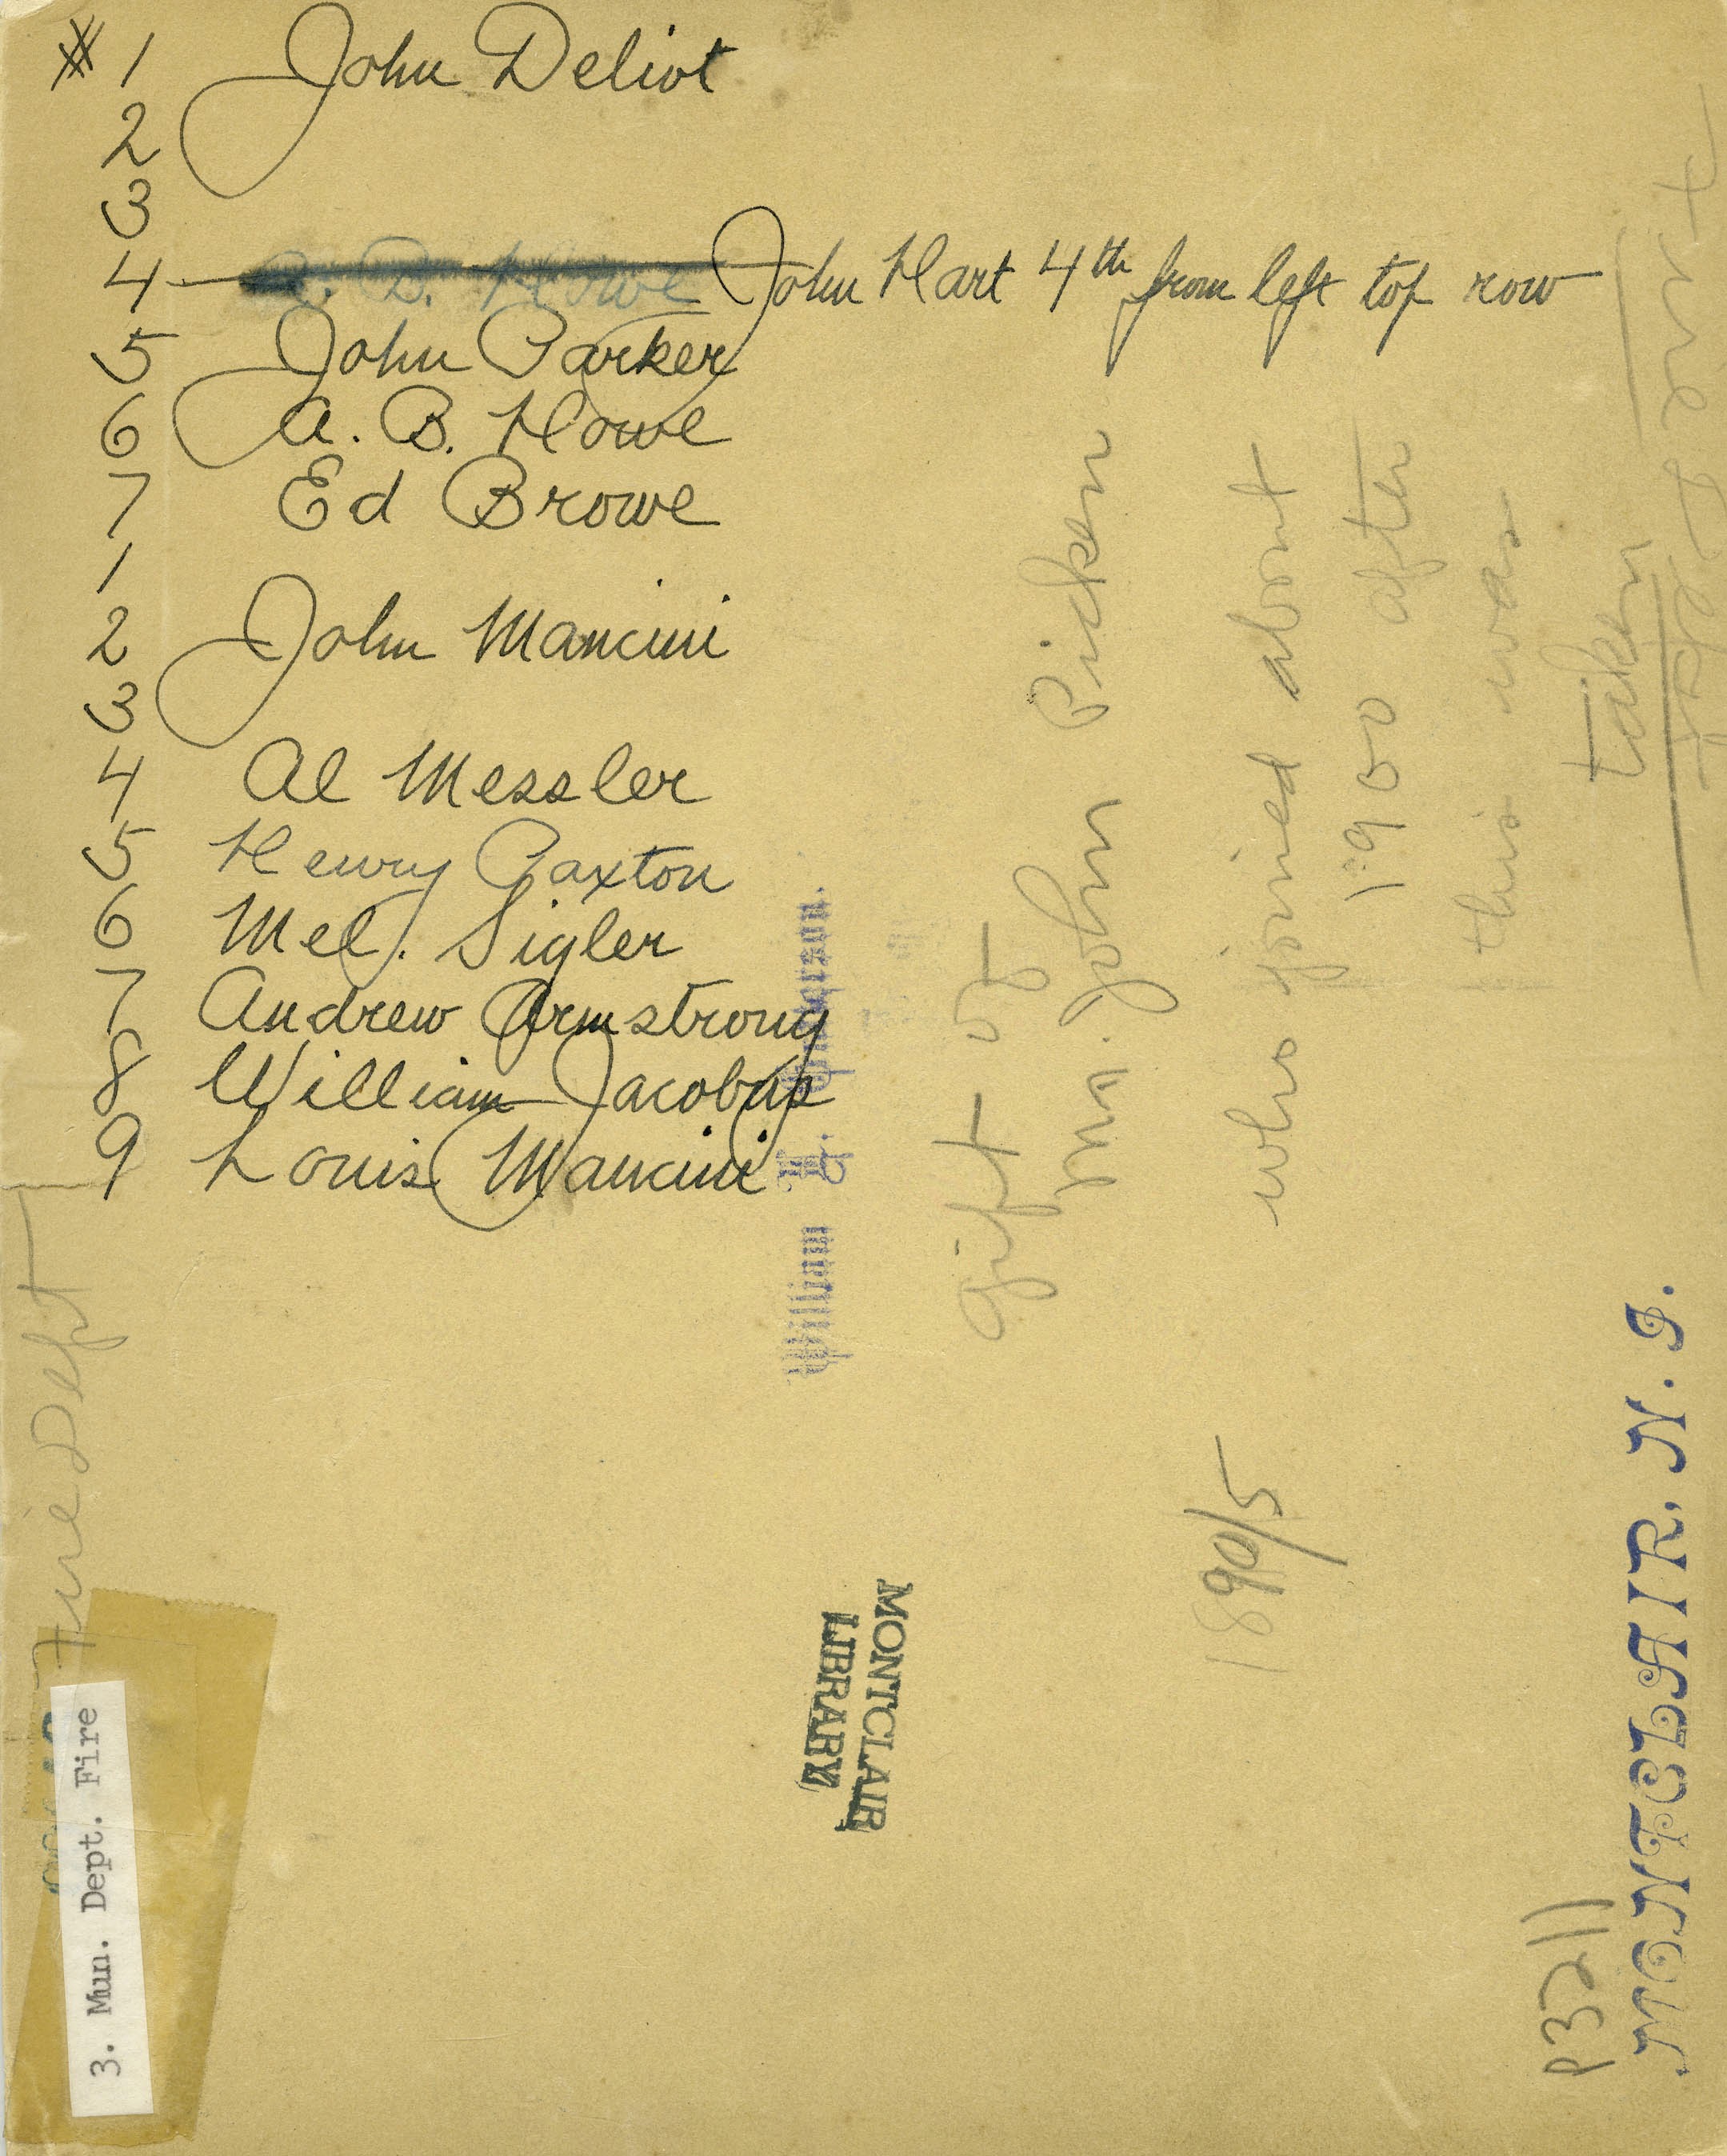 # 1 John Deliot
2
3
4 A. B. Howe John Hart 4th from left top row
5 John Parker
6 A. B. Howe
7 Ed Browe
1
2 John Mancini
3
4 Al Messler
5 Henry Paxton
6 Mel. Sigler
7 Andrew Armstrong
8 William Jacobus
9 Louis Mancini
Fire Dept
3. Mun. Dept. Fire
MONTCLAIR
LIBRARY
gift of
Mr. John Picken
who joined about
1900 after
this was
taken
1890/5
P3211
MONTCLAIR, N. J.